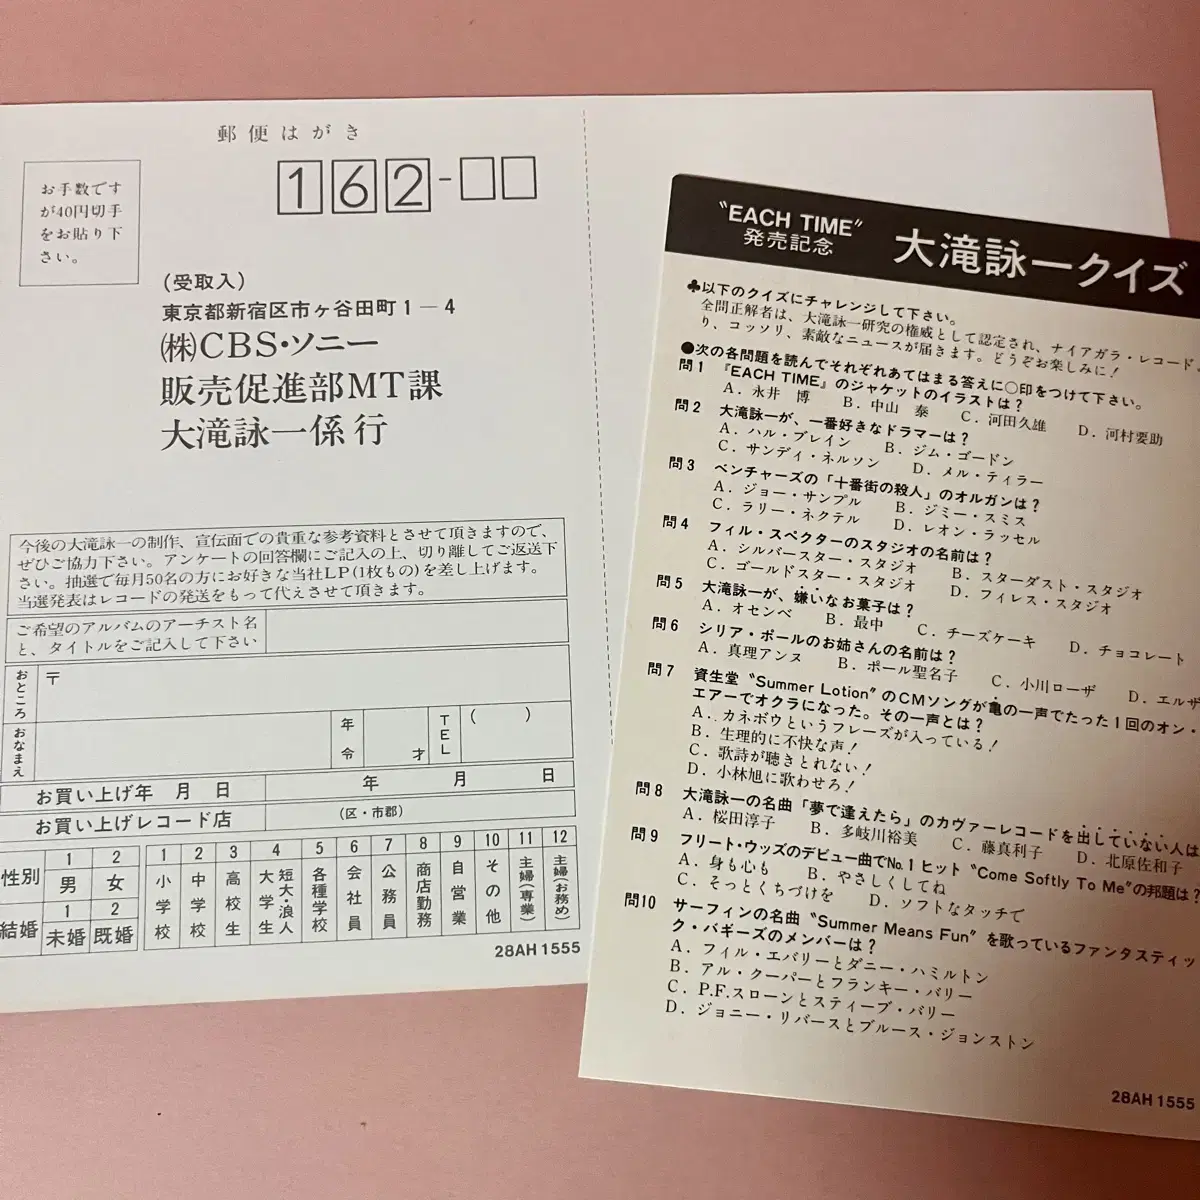 郵便はがき
お手数です
が40円切手
をお貼り下
さい。
162-
(受取人)
東京都新宿区市ヶ谷田町1-4
(株)CBS・ソニー
販売促進部MT課
大滝詠一係行
今後の大滝詠一の制作、宣伝面での貴重な参考資料とさせて頂きますので、
ぜひご協力下さい。アンケートの回答欄にご記入の上、切り離してご返送下
さい。抽選で毎月50名の方にお好きな当社LP(1枚もの)を差し上げます。
当選発表はレコードの発送をもって代えさせて頂きます。
ご希望のアルバムのアーチスト名
と、タイトルをご記入して下さい
おところ
〒
おなまえ
年令
才
TEL
( )
お買い上げ年 月 日
年 月 日
お買い上げレコード店
(区・市郡)
性別
1 男
2 女
結婚
1 未婚
2 既婚
1 小学校
2 中学校
3 高校生
4 短大・浪人 大学生
5 各種学校
6 会社員
7 公務員
8 商店勤務
9 自営業
10 その他
11 主婦(専業)
12 主婦(お務め)
28AH 1555
"EACH TIME"
発売記念
大滝詠一クイズ
♣以下のクイズにチャレンジして下さい。
全問正解者は、大滝詠一研究の権威として認定され、ナイアガラ・レコード・
り、コッソリ、素敵なニュースが届きます。どうぞお楽しみに!
●次の各問題を読んでそれぞれあてはまる答えに○印をつけて下さい。
問1 『EACH TIME』のジャケットのイラストは?
A. 永井 博 B. 中山 泰 C. 河田久雄 D. 河村要助
問2 大滝詠一が、一番好きなドラマーは?
A. ハル・ブレイン B. ジム・ゴードン
C. サンディ・ネルソン D. メル・テイラー
問3 ベンチャーズの「十番街の殺人」のオルガンは?
A. ジョー・サンプル B. ジミー・スミス
C. ラリー・ネクテル D. レオン・ラッセル
問4 フィル・スペクターのスタジオの名前は?
A. シルバースター・スタジオ B. スターダスト・スタジオ
C. ゴールドスター・スタジオ D. フィレス・スタジオ
問5 大滝詠一が、嫌いなお菓子は?
A. オセンベ B. 最中 C. チーズケーキ D. チョコレート
問6 シリア・ポールのお姉さんの名前は?
A. 真理アンヌ B. ポール聖名子 C. 小川ローザ D. エルザ
問7 資生堂"Summer Lotion"のCMソングが亀の一声でたった1回のオン・
エアーでオクラになった。その一声とは?
A. カネボウというフレーズが入っている!
B. 生理的に不快な声!
C. 歌詩が聴きとれない!
D. 小林旭に歌わせろ!
問8 大滝詠一の名曲「夢で逢えたら」のカヴァーレコードを出していない人は
A. 桜田淳子 B. 多岐川裕美 C. 藤真利子 D. 北原佐和子
問9 フリート・ウッズのデビュー曲でNo.1ヒット"Come Softly To Me"の邦題は?
A. 身も心も B. やさしくしてね
C. そっとくちづけを D. ソフトなタッチで
問10 サーフィンの名曲"Summer Means Fun"を歌っているファンタスティッ
ク・バギーズのメンバーは?
A. フィル・エバリーとダニー・ハミルトン
B. アル・クーパーとフランキー・バリー
C. P.F.スローンとスティーブ・バリー
D. ジョニー・リバースとブルース・ジョンストン
28AH 1555